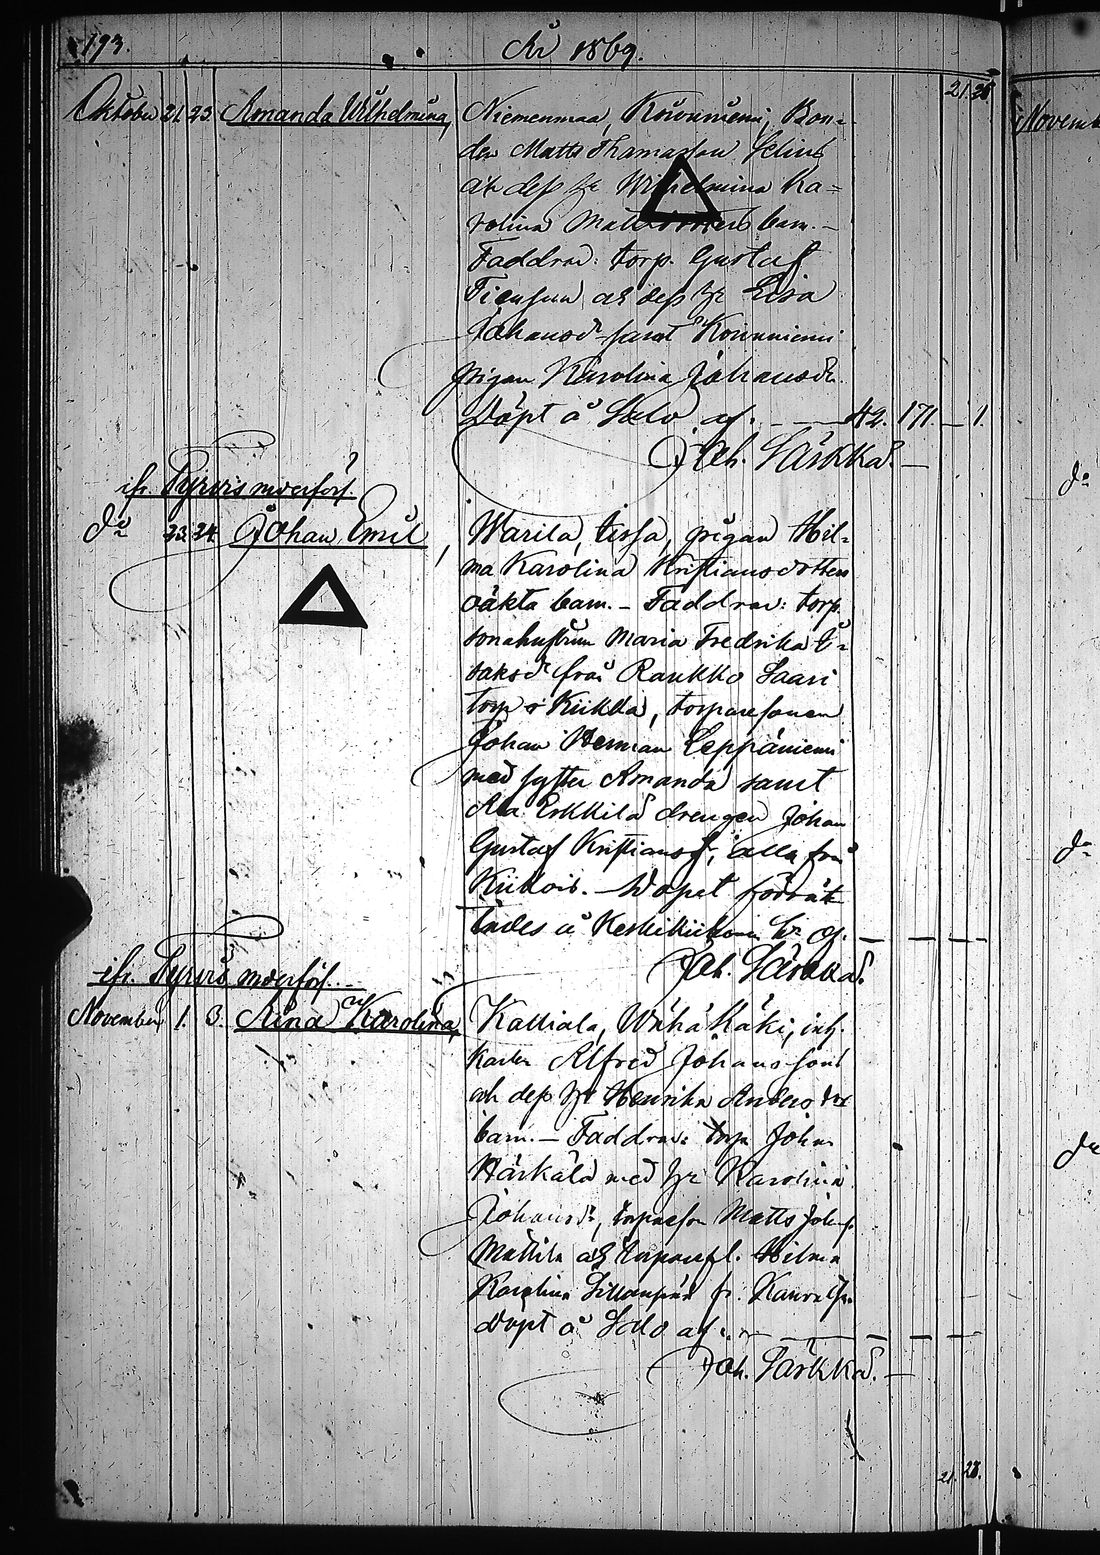 193.
År 1869.
21. 28
Oktober 21. 23. Amanda Wilhelmina, Niemenmaa, Kouvuniemi, Bon=
den Matts Thomasson Selins
och dess hr Wilhelmina Ka=
rolina Mattsdotters barn. —
Faddrar: torp. Gustaf
och dess hr Lisa
Johansdr samt Kouvuniemi
pigan Karolina Johansdr.
Döpt å Salo af. — 42. 171. — 1.
Joh. Särkkä. —
ifr. Tyrvis moderförs.
do 23. 24. Johan Emil, Warila, Tissa, pigan Hil=
ma Karolina Kristiansdotters
oäkta barn. — Faddrar: torp.
sonahustrun Maria Fredrika I=
saksdr från Raukko Saari
torp i Kiikka, torparesonen
Johan Herman Leppäniemi
med syster Amanda samt
Ala Erkkilä drengen Johan
Gustaf Kristianss., alla från
Kiikois. — Dopet förrät
tades å Keskikiikois by af. —
Joh. Särkkä.
ifr. Tyrvis moderförs. —
November 1. 3. Aina Karolina, Kalliala, Wähä Käki, inh.
karlen Alfred Johanssons
och dess hr Henrika Andersdrs
barn. — Faddrar: torp. Johan
Härkälä med hr Karolina
Johansdr, torpareson Matts Johans.
Mattila och torparefl. Hilma
Karolina Sillanpää fr.
Döpt å Salo af. —
Joh. Särkkä. —
21. 28.
Novemb
do
do
do